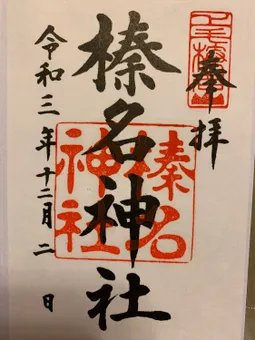 奉拝
榛名神社
榛名
神社
令和三年十二月二日